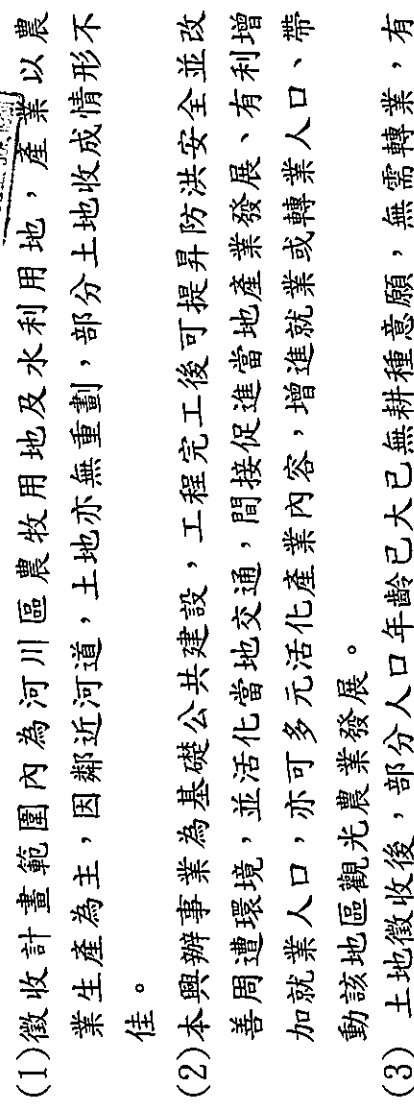 (1)徵收計畫範圍內為河川區農牧用地及水利用地，產業以農
業生產為主，因鄰近河道，土地亦無重劃，部分土地收成情形不
佳。
(2)本興辦事業為基礎公共建設，工程完工後可提昇防洪安全並改
善周遭環境，並活化當地交通，間接促進當地產業發展、有利增
加就業人口，亦可多元活化產業內容，增進就業或轉業人口、帶
動該地區觀光農業發展。
(3) 土地徵收後，部分人口年齡已大已無耕種意願，無需轉業，有